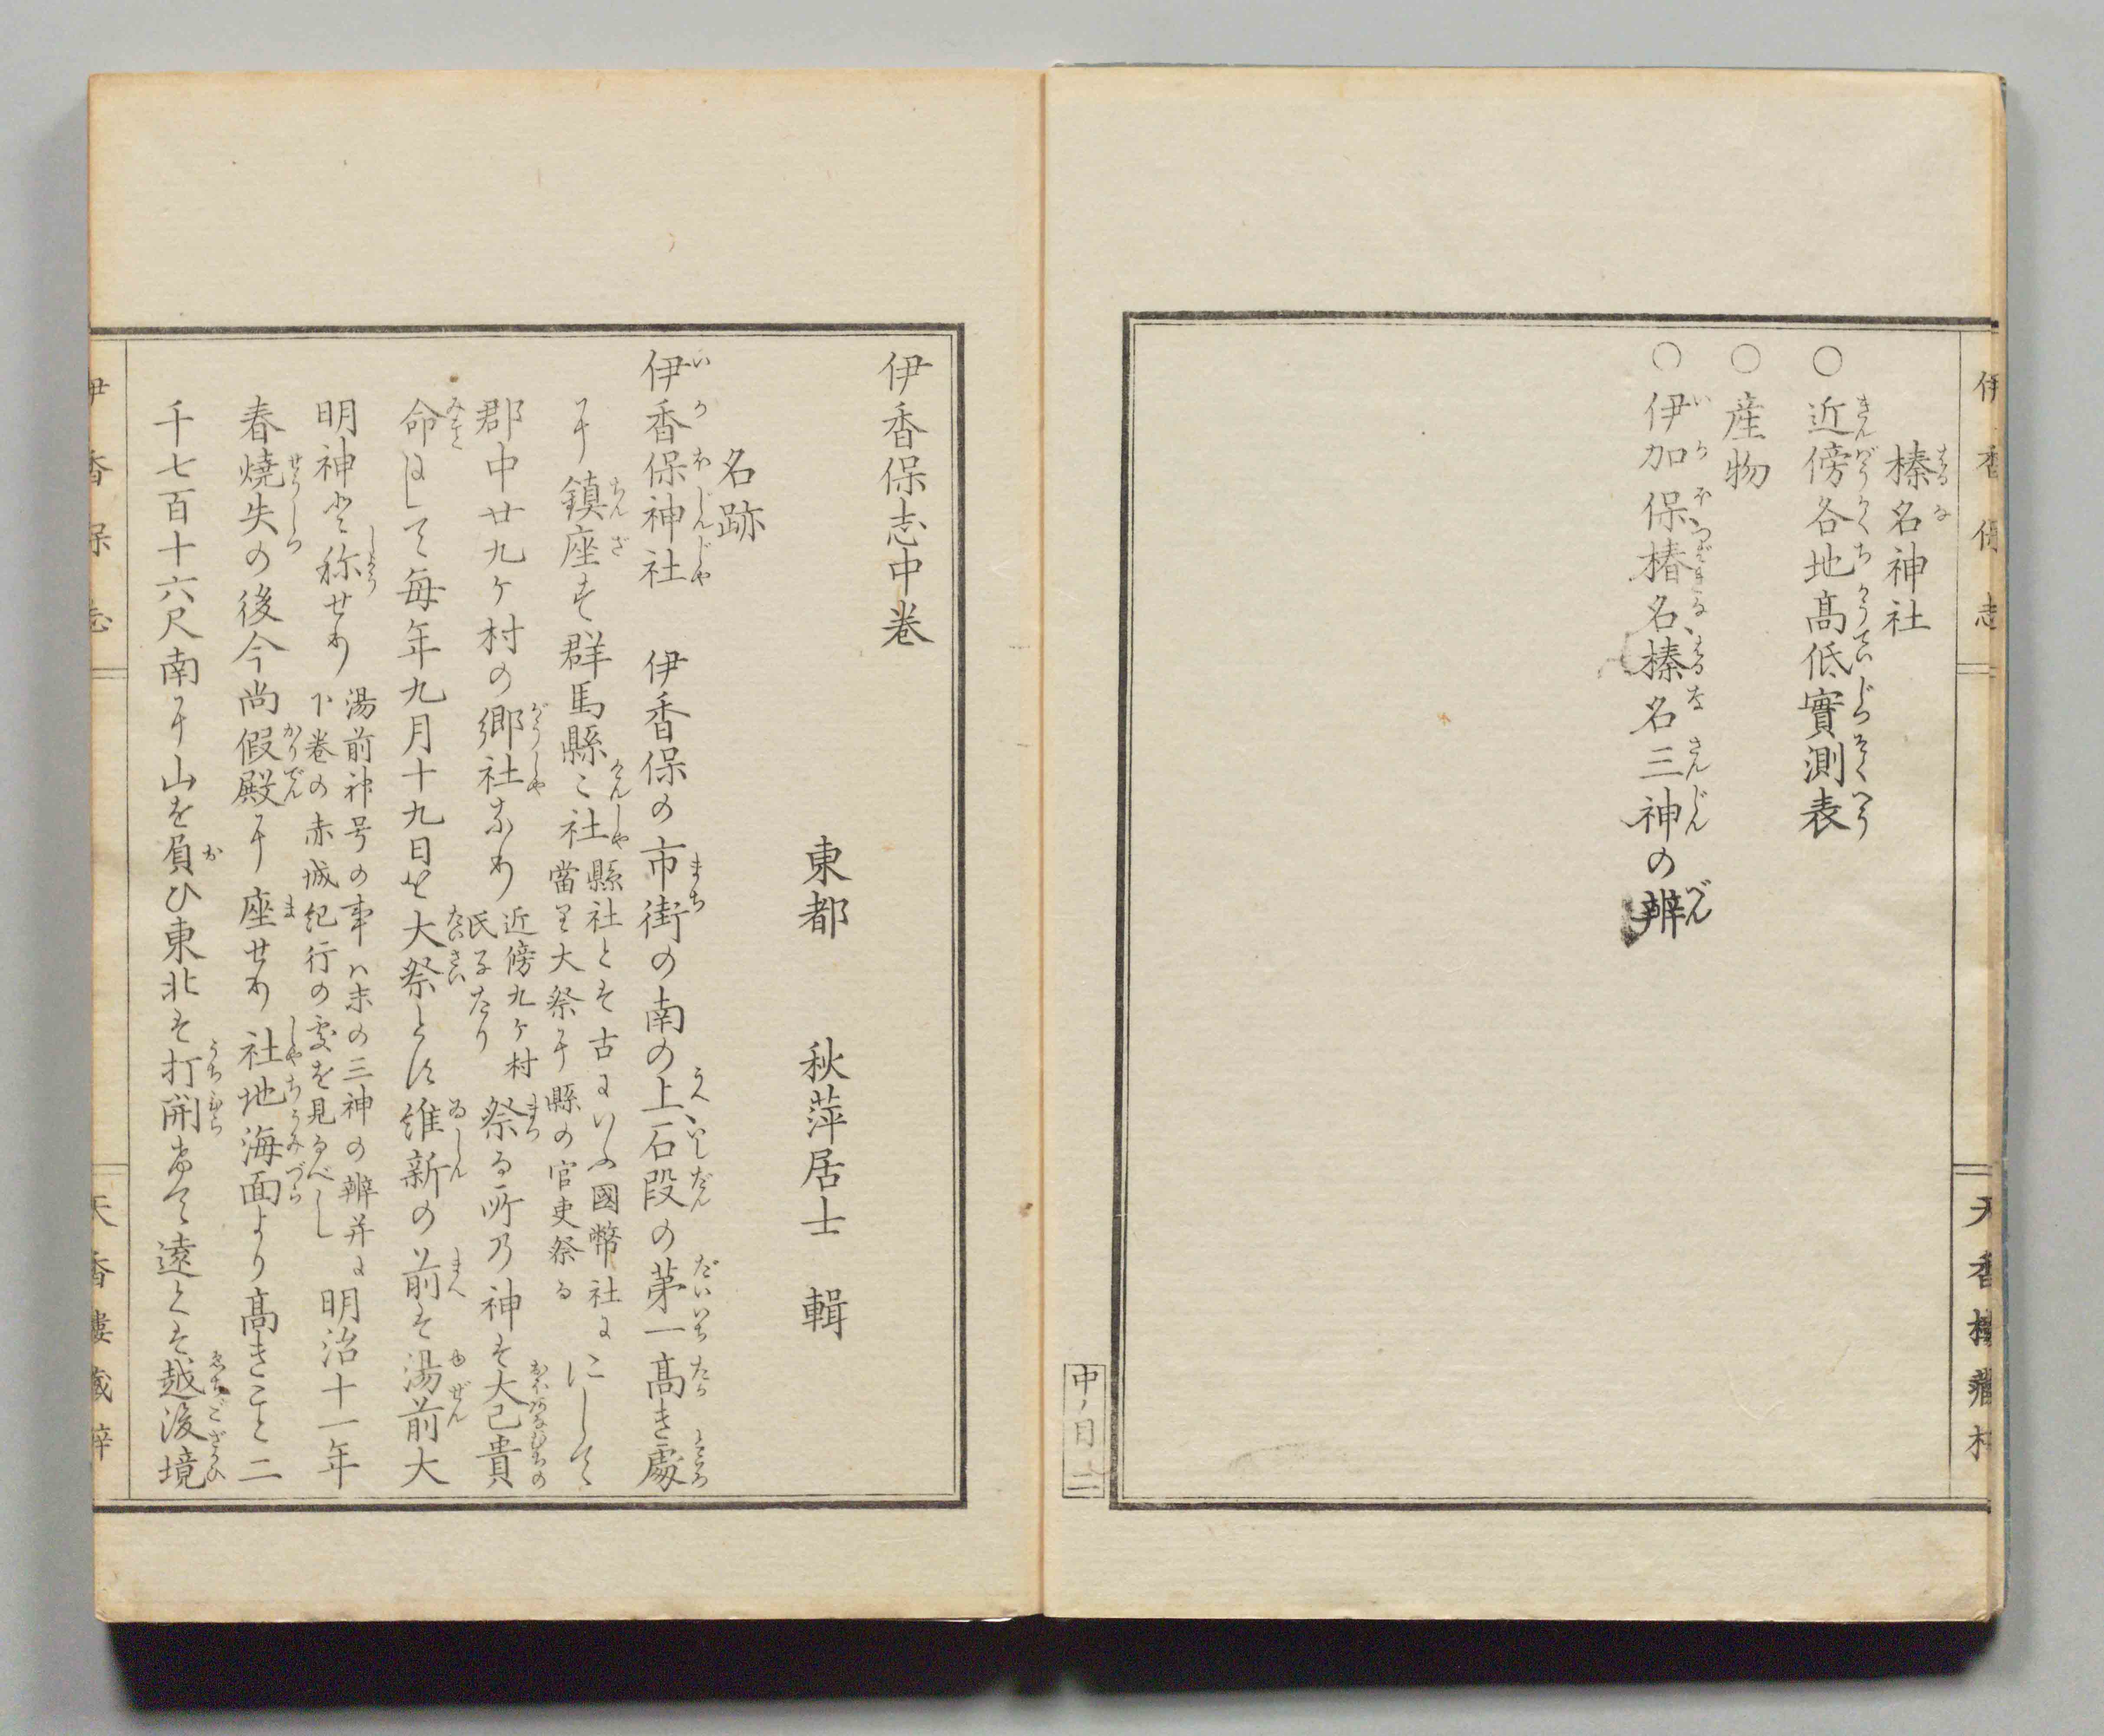 榛名神社
○近傍各地髙低實測表
○産物
○伊加保、椿名、榛名三神の辨
中ノ目 二
伊香保志中巻
東都 秋萍居士 輯
名跡
伊香保神社 伊香保の市街の南の上、石段の第一髙き處
に鎮座す群馬縣々社
縣社とは古にいふ國幣社に
當り大祭に縣の官吏祭る
にして
郡中廿九ケ村の郷社なり
近傍九ケ村
氏子たり
祭る所乃神は大己貴
命にして毎年九月十九日を大祭とす維新の前は湯前大
明神と称せり
湯前神号の事ハ末の三神の辨并に
下巻の赤城紀行の處を見るべし
明治十一年
春燒失の後今尚假殿に座せり社地海面より髙きこと二
千七百十六尺南に山を負ひ東北は打開きて遠くは越後境
伊香保志
天香樓蔵梓